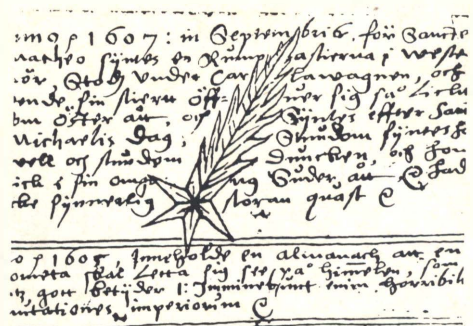 nno 1607: in Septembris, för Sancte
Matheo syntes en Rumpestierna i Weste
nör, Stod under Car lawagnen, och
ende sin stiern
om Öster att, och Syntes effter San
Michaelis dag, Stundom syntes h
vell och stundom duncken, och hon
ick i sin ong ng Suder att
cke synnerlig storan quast
o 1605, Inneholde en Almanach att en
ometa skal Letta sig see på himelen, som
gott betyder 1: Imminebunt enim horribili
mutationes imperiorum